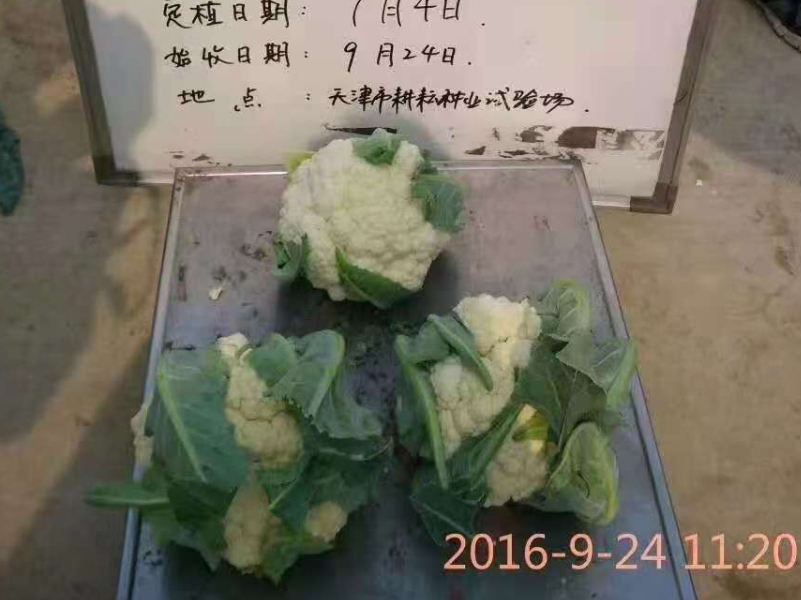 定植日期：7月4日.
始收日期：9月24日.
地点：天津市耕耘种业试验场.
2016-9-24 11:20